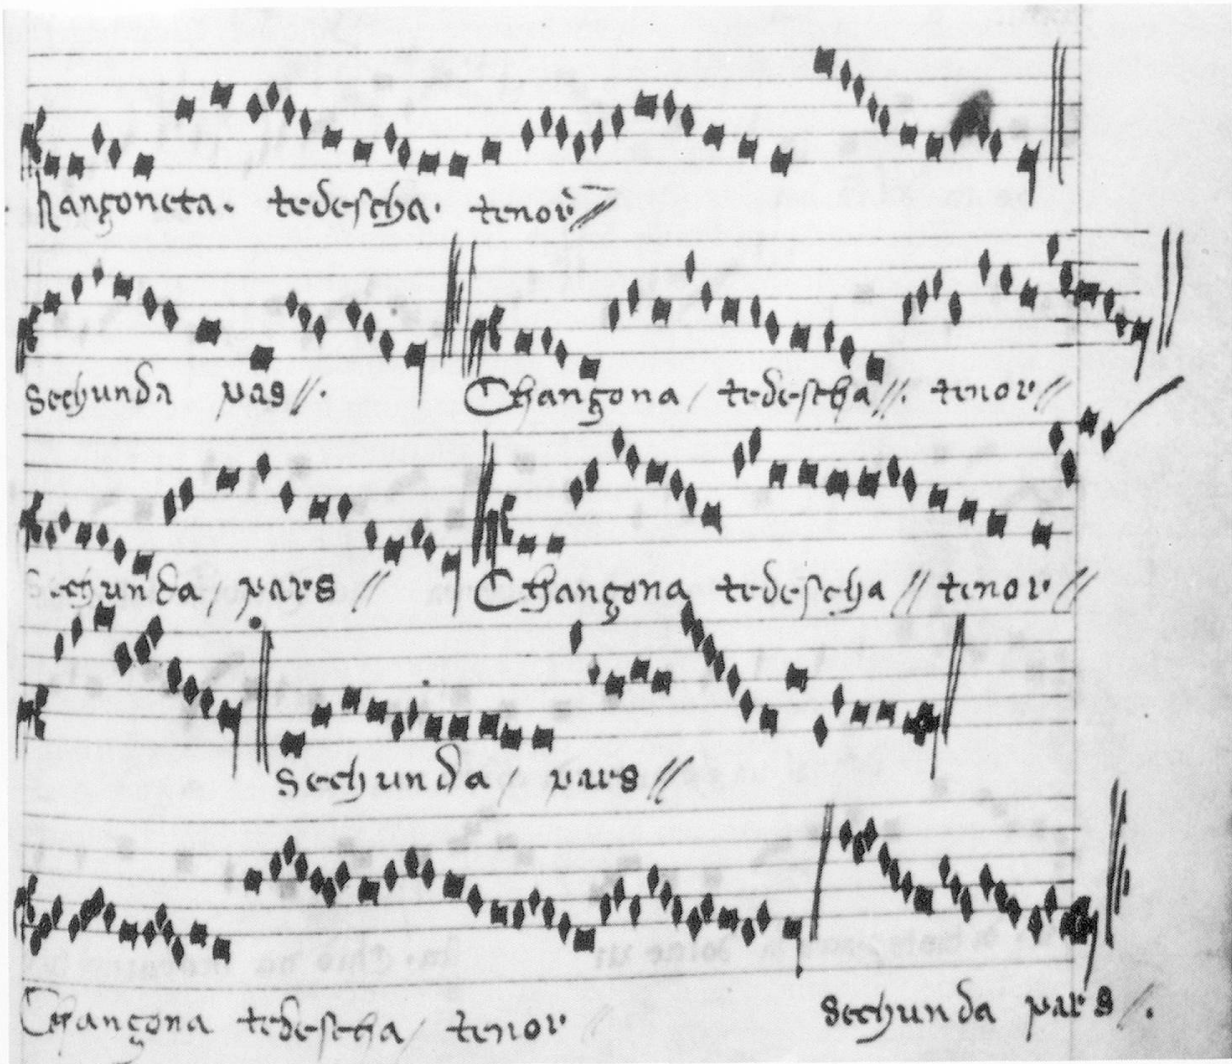 hançoneta. tedescha. tenor̄//
Sechunda pas//.
Chançona / tedescha//. tenor//
Sechunda / pars //
Chançona tedescha // tenor //
Sechunda / pars //
Chançona tedescha / tenor
Sechunda pars //.